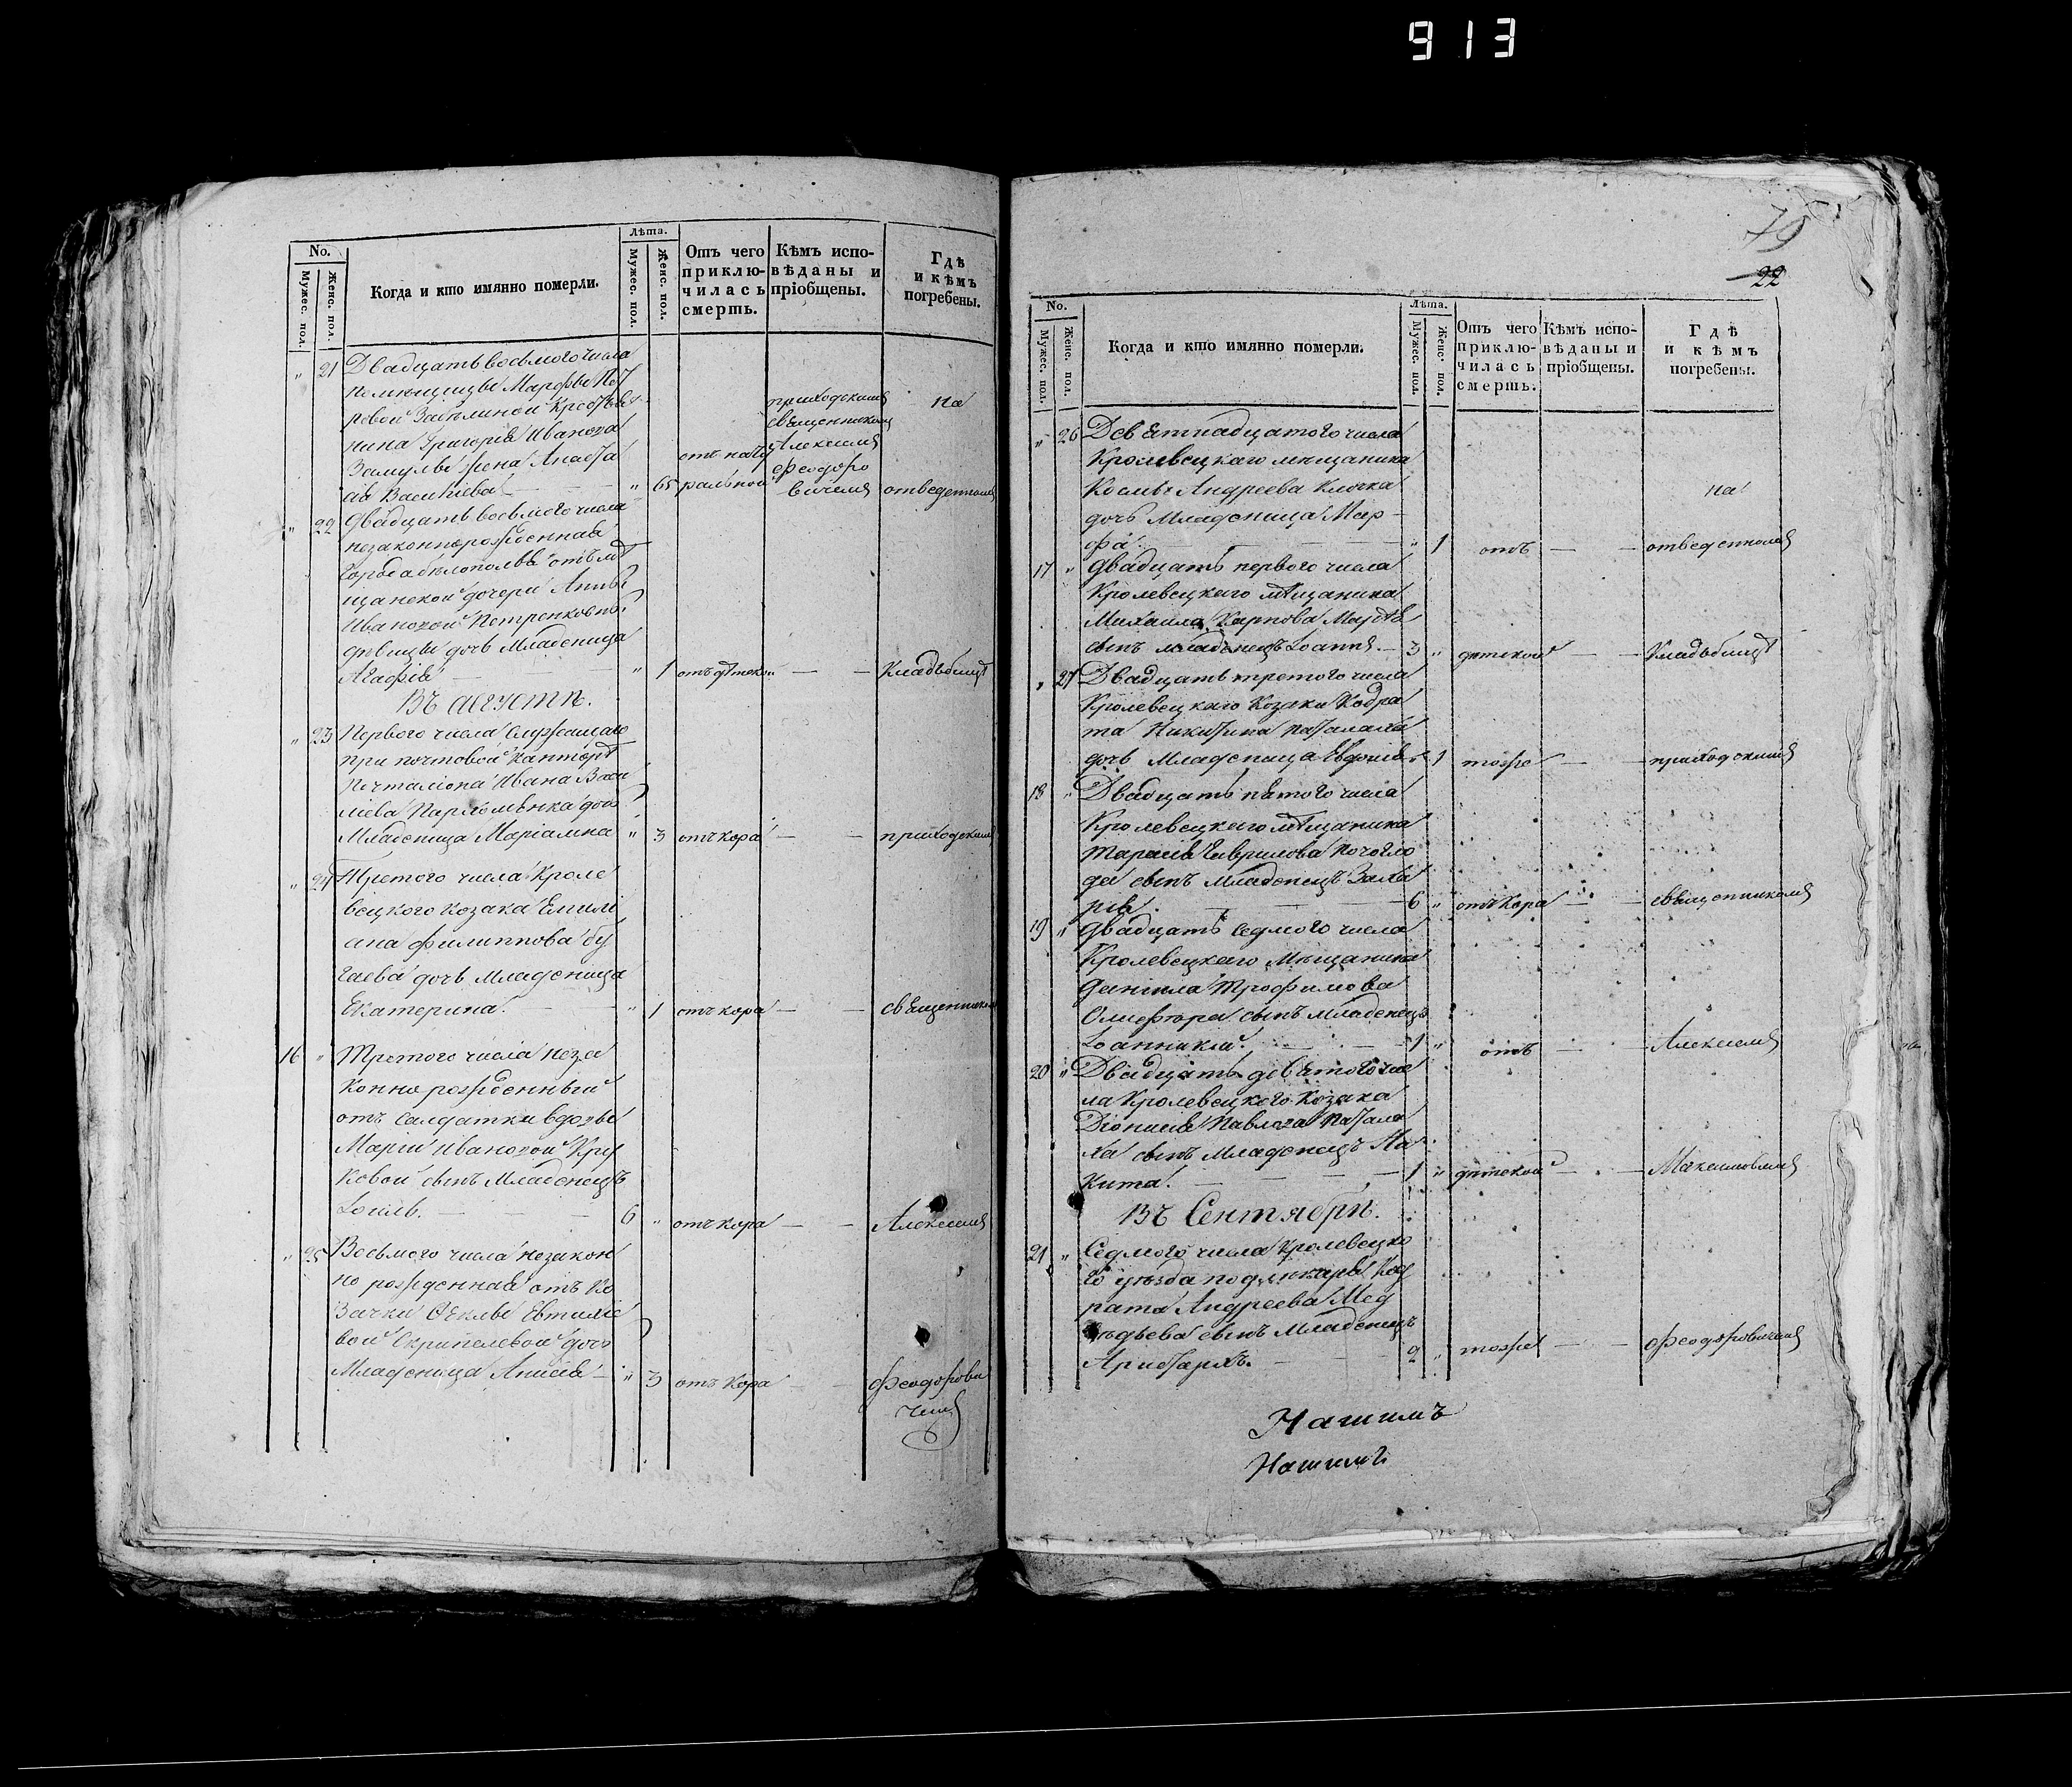 913
No.
Мужес. пол.
Женс. пол.
Когда и кто имянно померли.
Лѣта.
Мужес. пол.
Женс. пол.
Отъ чего приклю-
чилась смерть.
Кѣмъ испо-
вѣданы и
пріобщены.
Гдѣ
и кѣмъ
погребены.
" 21 Двадцать восьмого числа
помѣщицы Марфы Пет
ровой Крестья
нина Григорія Иванова
жена Анаста
сія Васильева — " 65 отъ нату ральной
приходскимъ
священникомъ
Алексіемъ
Феодоро
вичемъ
на
отведенномъ
" 22 Двадцать восьмого числа
незаконнорожденная
города бѣлополья отъ мѣ
щанской дочери Анны
Ивановой Петренковны
дѣвицы дочь Младеница
Агафія — " 1 отъ дѣтской — — Кладьбищѣ
Въ Августѣ.
" 23 Первого числа Служащаго
при почтовой Канторѣ
Почталіона Ивана Васи
ліева дочь
Младеница Маріамна " 3 отъ кора — — приходскимъ
" 24 Третого числа Кроле
вецкого Козака Емилі
ана Филиппова Бу
гаева дочь Младеница
Екатерина. — " 1 отъ кора — — священникомъ
16 " Третого числа неза
конно рожденный
отъ Салдатки вдовы
Маріи Ивановой Кру
ковой сынъ Младенецъ
— 6 " отъ кора — — Алексіемъ
" 25 Восьмого числа незакон
но рожденная отъ Ко
зачки Феклы Евтихіе
вой дочь
Младеница Анисія — " 3 отъ Кора — — Феодорови
чемъ
79
22
No.
Мужес. пол.
Женс. пол.
Когда и кто имянно померли.
Лѣта.
Мужес. пол.
Женс. пол.
Отъ чего
приклю-
чилась
смерть.
Кѣмъ испо-
вѣданы и
пріобщены.
Гдѣ
и кѣмъ
погребены.
" 26 Девятнадцатого числа
Кролевецкаго мѣщанина
Космы Андреева Клочка
дочь Младеница Мар-
фа — " 1 отъ — — на
отведенномъ
17 " Двадцать первого числа
Кролевецкаго мѣщанина
Михаила Карпова
сынъ младенецъ Іоаннъ. — 3 " дѣтской — — Кладьбищѣ
" 27 Двадцать третого числа
Кролевецкаго Козака Кодра
та Никитина Паталаха
дочь Младеница Евдокія " 1 тоже — — приходскимъ
18 " Двадцать пятого числа
Кролевецкаго мѣщанина
Тарасія Гаврилова
сынъ Младенецъ Заха
рія. — 6 " отъ Кора — — священникомъ
19 " Двадцать седмого числа
Кролевецкаго Мѣщанина
Даніила Трофимова
Олифера сынъ Младенецъ
Іоанникій. — 1 " отъ — — Алексіемъ
20 " Двадцать девятого чис
ла Кролевецкого Козака
Діонисія Павлова Патала
ха сынъ Младенецъ Ни
кита. — 1 " дѣтской — — Максимовымъ
Въ Сентябрѣ.
21 " Седмого числа Кролевецко
го уѣзда Код
рата Андреева Мед
вѣдева сынъ Младенецъ
Аристархъ. — 2 " тоже — — Феодоровичемъ